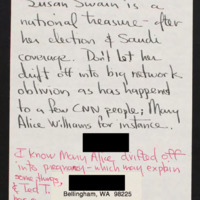 Susan Swain is a
national treasure - after
her election & Saudi
coverage. Don't let her
drift off into big network
oblivion as has happened
to a few CNN people; Mary
Alice Williams for instance.
I know Mary Alice, drifted off
into pregnancy - which may explain
some things.
& Ted T.
Bellingham, WA 98225